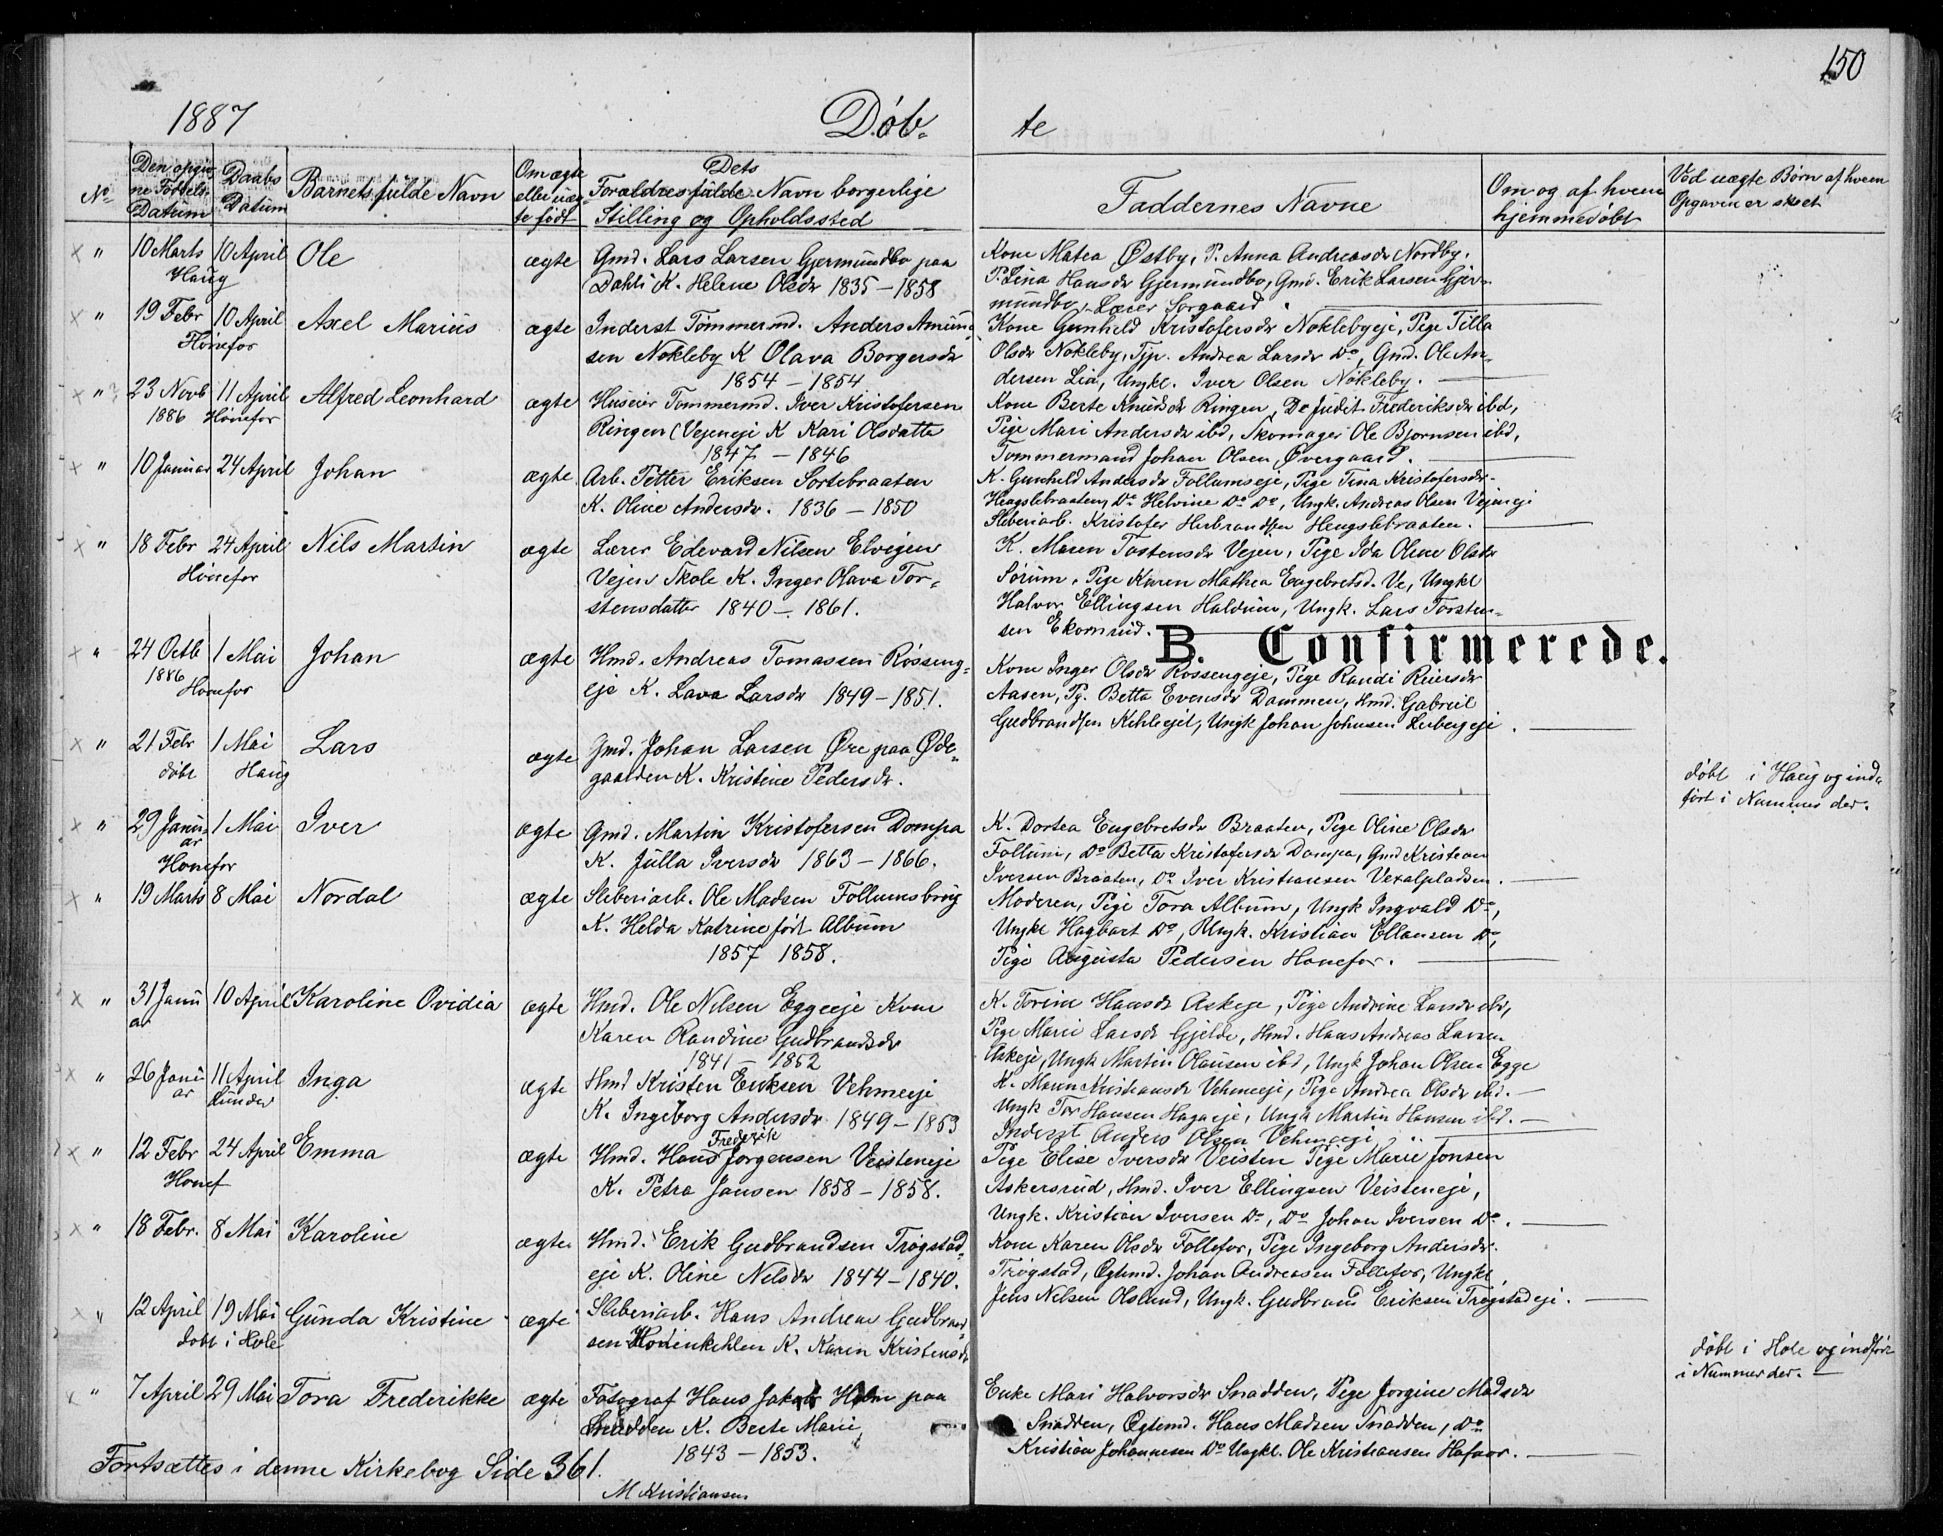 150
1887
Döb-
te
No
Den opgiv-
ne Födsels-
Datum
Daabs
Datum
Barnets fulde Navn
Om ægte
eller uæg-
te född
Dets
Forældres fulde Navn borgerlige
Stilling og Opholdssted
Faddernes Navne
Om og af hvem
hjemmedöbt
Ved uægte Börn af hvem
Opgaven er skeet
" 10 Marts 10 April Ole ægte Gmd. Lars Larsen Gjermundbo paa
Haug
Dahli K. Helene Olsdr 1835 - 1858
Kone Matea Østby, P. Anna Andreasdr Nordby,
P. Lina Hansdr Gjermundbo, Gmd. Erik Larsen Gjer-
mundbo, Lærer Sorgaard
" 19 Febr 10 April Axel Marius ægte Inderst Tömmermd. Anders Amund-
Hönefos
sen Nökleby K Olava Borgersdr
1854 - 1854
Kone Gunhild Kristofersdr Noklebyeje, Pige Tilla
Olsdr Nökleby, Tjp. Andrea Larsdr Do, Gmd. Ole An-
dersen Lia, Ungkl. Iver Olsen Nökleby.
" 23 Novb 11 April Alfred Leonhard ægte Huseier Tommermd. Iver Kristofersen
1886 Hönefos
Ringen (Vejeneje K Kari Olsdatte
1847 - 1846
Kone Berte Knudsdr Ringen, Do Judit Frederiksdr ibd,
Pige Mari Andersdr ibd, Skomager Ole Bjornsen ibd,
Tommermand Johan Olsen Øvergaard.
" 10 Januar 24 April Johan ægte Arb. Petter Eriksen Sortebraaten
K. Oline Andersdr. 1836 - 1850
K. Gunhild Andersdr Follumseje, Pige Tina Kristofersdr
Hengslebraaten, Do Helvine Do Do, Ungk. Andreas Olsen Vejeneje
Sleberiarb. Kristofer Hengslebraaten.
" 18 Febr 24 April Nils Martin ægte Lærer Edevard Nilsen Elvejen
Hönefos
Vejen Skole K. Inger Olava Tor-
stensdatter 1840 - 1861.
K. Maren Tostensdr Vejen, Pige Ida Oline Olsdr
Sörum, Pige Karen Mathea Engebretsd. Ve, Ungkl
Halvor Ellingsen Haldum, Ungk. Lars Torsten-
sen Ekornrud.
B. Confirmerede.
" 24 Octb 1 Mai Johan ægte Hmd. Andreas Tomassen Røsseng-
1886
Honefos
eje K. Lava Larsdr 1849 - 1851.
Kone Inger Olsdr Røssengeje, Pige Randi Reiersdr
Aasen, Pg. Betta Evensdr Dammen, Hmd. Gabriel
Gudbrandsen, Ungk Johan Johnsen
" 21 Febr 1 Mai Lars ægte Gmd. Johan Larsen Øre paa Øde-
döbt Haug
gaarden K. Kristine Pedersdr.
döbt i Haug og ind-
fört i Nummer der.
" 29 Janu- 1 Mai Iver ægte Gmd. Martin Kristofersen Dompa
ar
Honefos
K. Julla Iversdr 1863 - 1866.
K. Dortea Engebretsdr Braaten, Pige Oline Olsdr
Follum, Do Betta Kristofersdr Dompa, Gmd Kristian
Iversen Braaten, Do Iver Kristiansen Vexalpladsen.
" 19 Marts 8 Mai Nordal ægte Sleberiarb. Ole Madsen Follumsbrug
K. Helda Katrine född Album
1857 1858.
Moderen, Pige Tora Album, Ungk Ingvald Do,
Ungkl Hagbart Do, Ungk. Kristian Ellansen Do,
Pige Augusta Pedersen Honefos.
" 31 Janu 10 April Karoline Ovidia ægte Hmd. Ole Nilsen Eggeeje Kone
ar
Karen Randine Gudbrandsdr
1841 - 1852
K. Torine Hansdr Askeje, Pige Andrine Larsdr ibd,
Pige Marie Larsdr Gjelde, Hmd. Hans Andreas Larsen
Askeje, Ungk Martin Olausen ibd, Ungk Johan Olsen Egge
" 26 Janu- 11 April Inga ægte Hmd Kristen Eriksen Vehmeeje
ar Lunder
K. Ingeborg Andersdr 1849 - 1853
K. Maren Kristiansdr Vehmeeje, Pige Andrea Olsdr ibd.
Ungk Tor Hansen Hagaeje, Ungk Martin Hansen ibd.
Inderst Anders Olsen Vehmeeje
" 12 Febr 24 April Emma ægte Hmd. Hans Frederik Jorgensen Veisteneje
Honef
K. Petra Jansen 1858 - 1858.
Pige Elise Iversdr Veisten Pige Marie Jonsen
Askersrud, Hmd. Iver Ellingsen Veisteneje,
Ungk. Kristian Iversen Do, Do Johan Iversen Do.
" 18 Febr. 8 Mai Karoline ægte Hmd. Erik Gudbrandsen Trøgstad-
eje K. Oline Nelsdr 1844 - 1840.
Kone Karen Olsdr Follefos, Pige Ingeborg Andersdr.
Trögstad, Ægtemd. Johan Andreasen Follefos, Ungkl
Jens Nelsen Oslund, Ungk. Gudbrand Eriksen Trögstadeje.
" 12 April 19 Mai Gunda Kristine ægte Sleberiarb. Hans Andreas Gudbrand-
döbt i Hole
sen K. Karen Kristensdr
döbt i Hole og indfört
i Nummer der.
" 7 April 29 Mai Tora Frederikke ægte Fotograf Hans Jakob Holm paa
Snadden K. Berte Marie
1843 - 1853.
Enke Mari Halvorsdr Snadden, Pige Jorgine Madsdr
Snadden, Ægtemd. Hans Madsen Snadden, Do
Kristian Johannesen Do Ungkl. Ole Kristiansen Hafnor.
Fortsættes i denne Kirkebog Side 361.
M Kristiansen